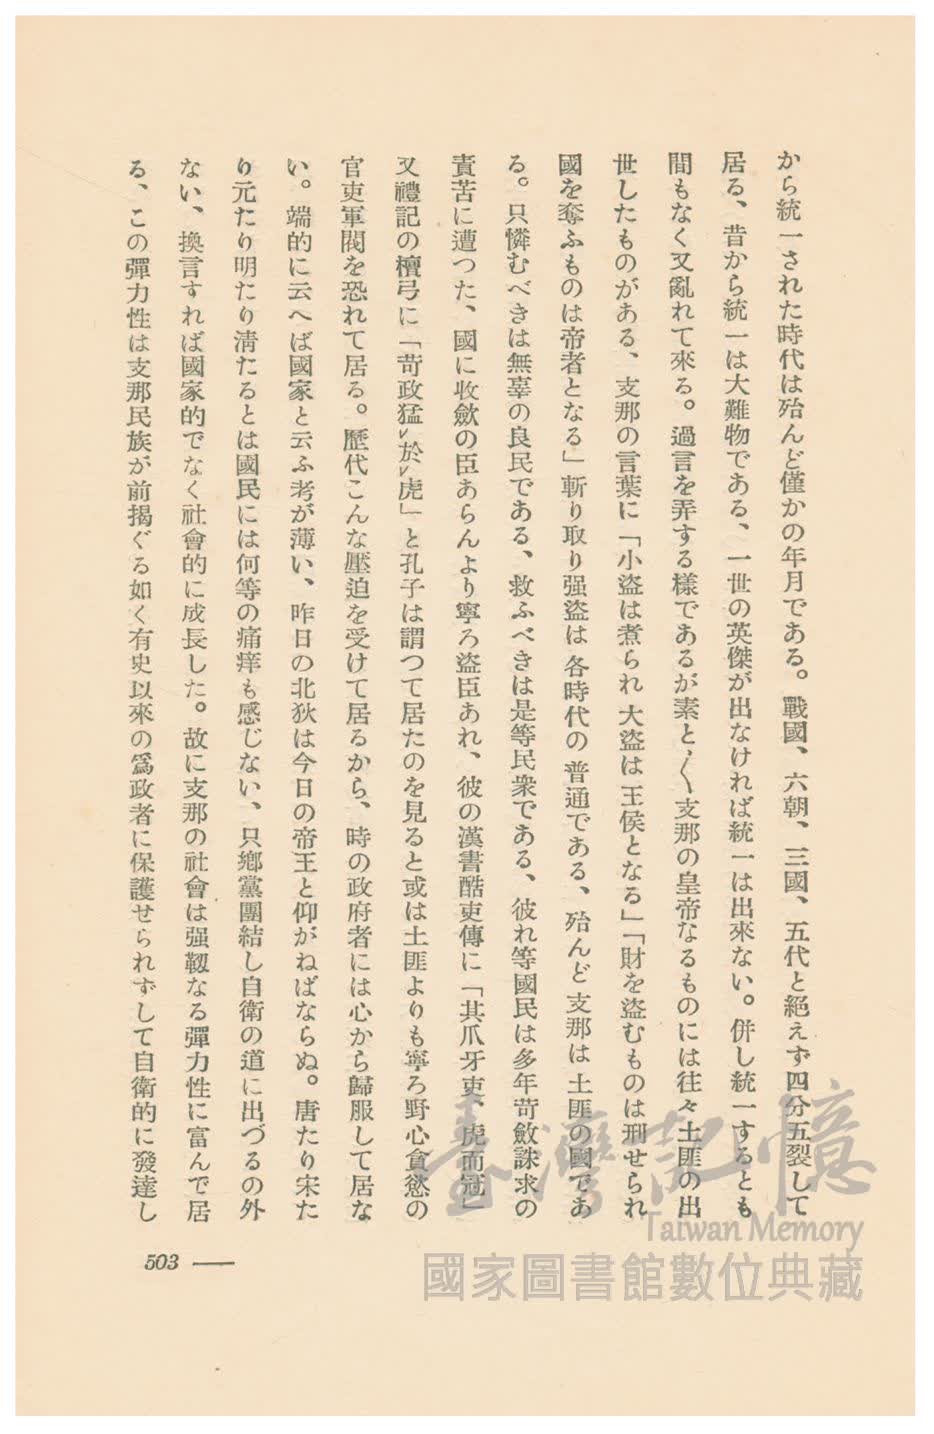 から統一された時代は殆んど僅かの年月である。戰國、六朝、三國、五代と絕えず四分五裂して
居る、昔から統一は大難物である、一世の英傑が出なければ統一は出來ない。併し統一するとも
間もなく又亂れて來る。過言を弄する樣であるが素と〱支那の皇帝なるものには往々土匪の出
世したものがある、支那の言葉に「小盜は煮られ大盜は王侯となる」「財を盜むものは刑せられ
國を奪ふものは帝者となる」斬り取り强盜は各時代の普通である、殆んど支那は土匪の國であ
る。只憐むべきは無辜の良民である、救ふべきは是等民衆である、彼れ等國民は多年苛斂誅求の
責苦に遭つた、國に收斂の臣あらんより寧ろ盜臣あれ、彼の漢書酷吏傳に「其爪牙吏、虎而冠」
又禮記の檀弓に「苛政猛㆑於㆑虎」と孔子は謂つて居たのを見ると或は土匪よりも寧ろ野心貪慾の
官吏軍閥を恐れて居る。歷代こんな壓迫を受けて居るから、時の政府者には心から歸服して居な
い。端的に云へば國家と云ふ考が薄い、昨日の北狄は今日の帝王と仰がねばならぬ。唐たり宋た
り元たり明たり淸たるとは國民には何等の痛痒も感じない、只鄕黨團結し自衞の道に出づるの外
ない、換言すれば國家的でなく社會的に成長した。故に支那の社會は强靱なる彈力性に富んで居
る、この彈力性は支那民族が前揭ぐる如く有史以來の爲政者に保護せられずして自衞的に發達し
503 —
臺灣記憶
Taiwan Memory
國家圖書館數位典藏